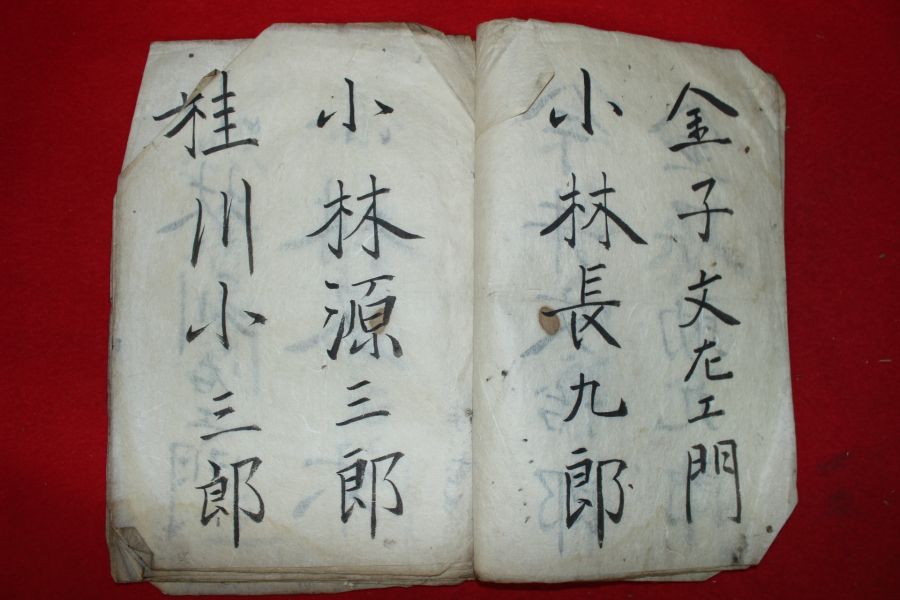 金子文左エ門
小林長九郎
小林源三郎
桂川小三郎